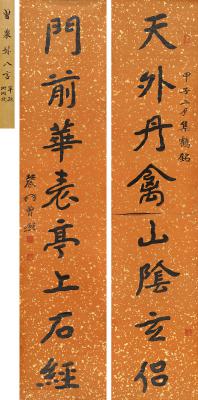 天外丹禽山陰玄侶
甲子二月集鶴銘
門前華表亭上石經
農髯曾熙
曾農髯八言